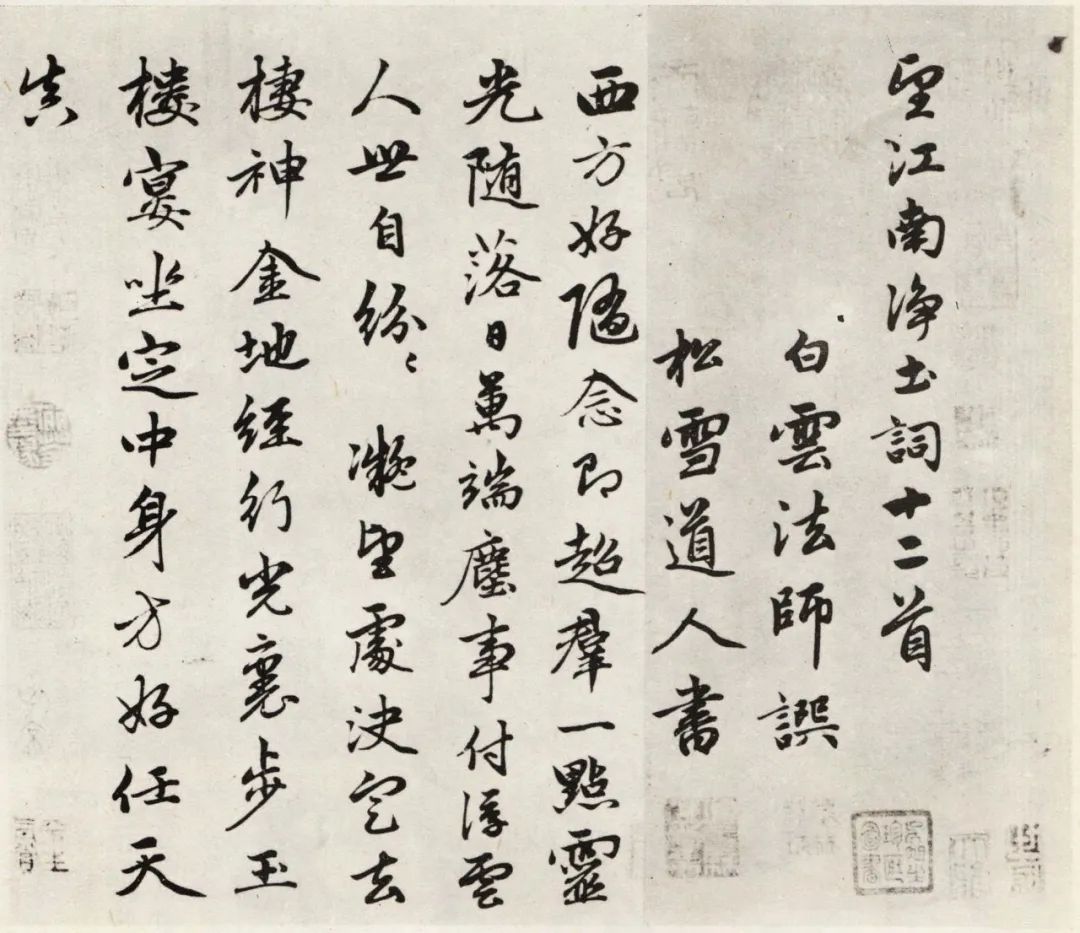 望江南浄土詞十二首
白雲法師譔
松雪道人書
西方好随念即超羣一點靈
光随落日萬端塵事付浮雲
人世自紛〻凝望處决定去
棲神金地經行光裏步玉
楼宴坐定中身方好任天
真